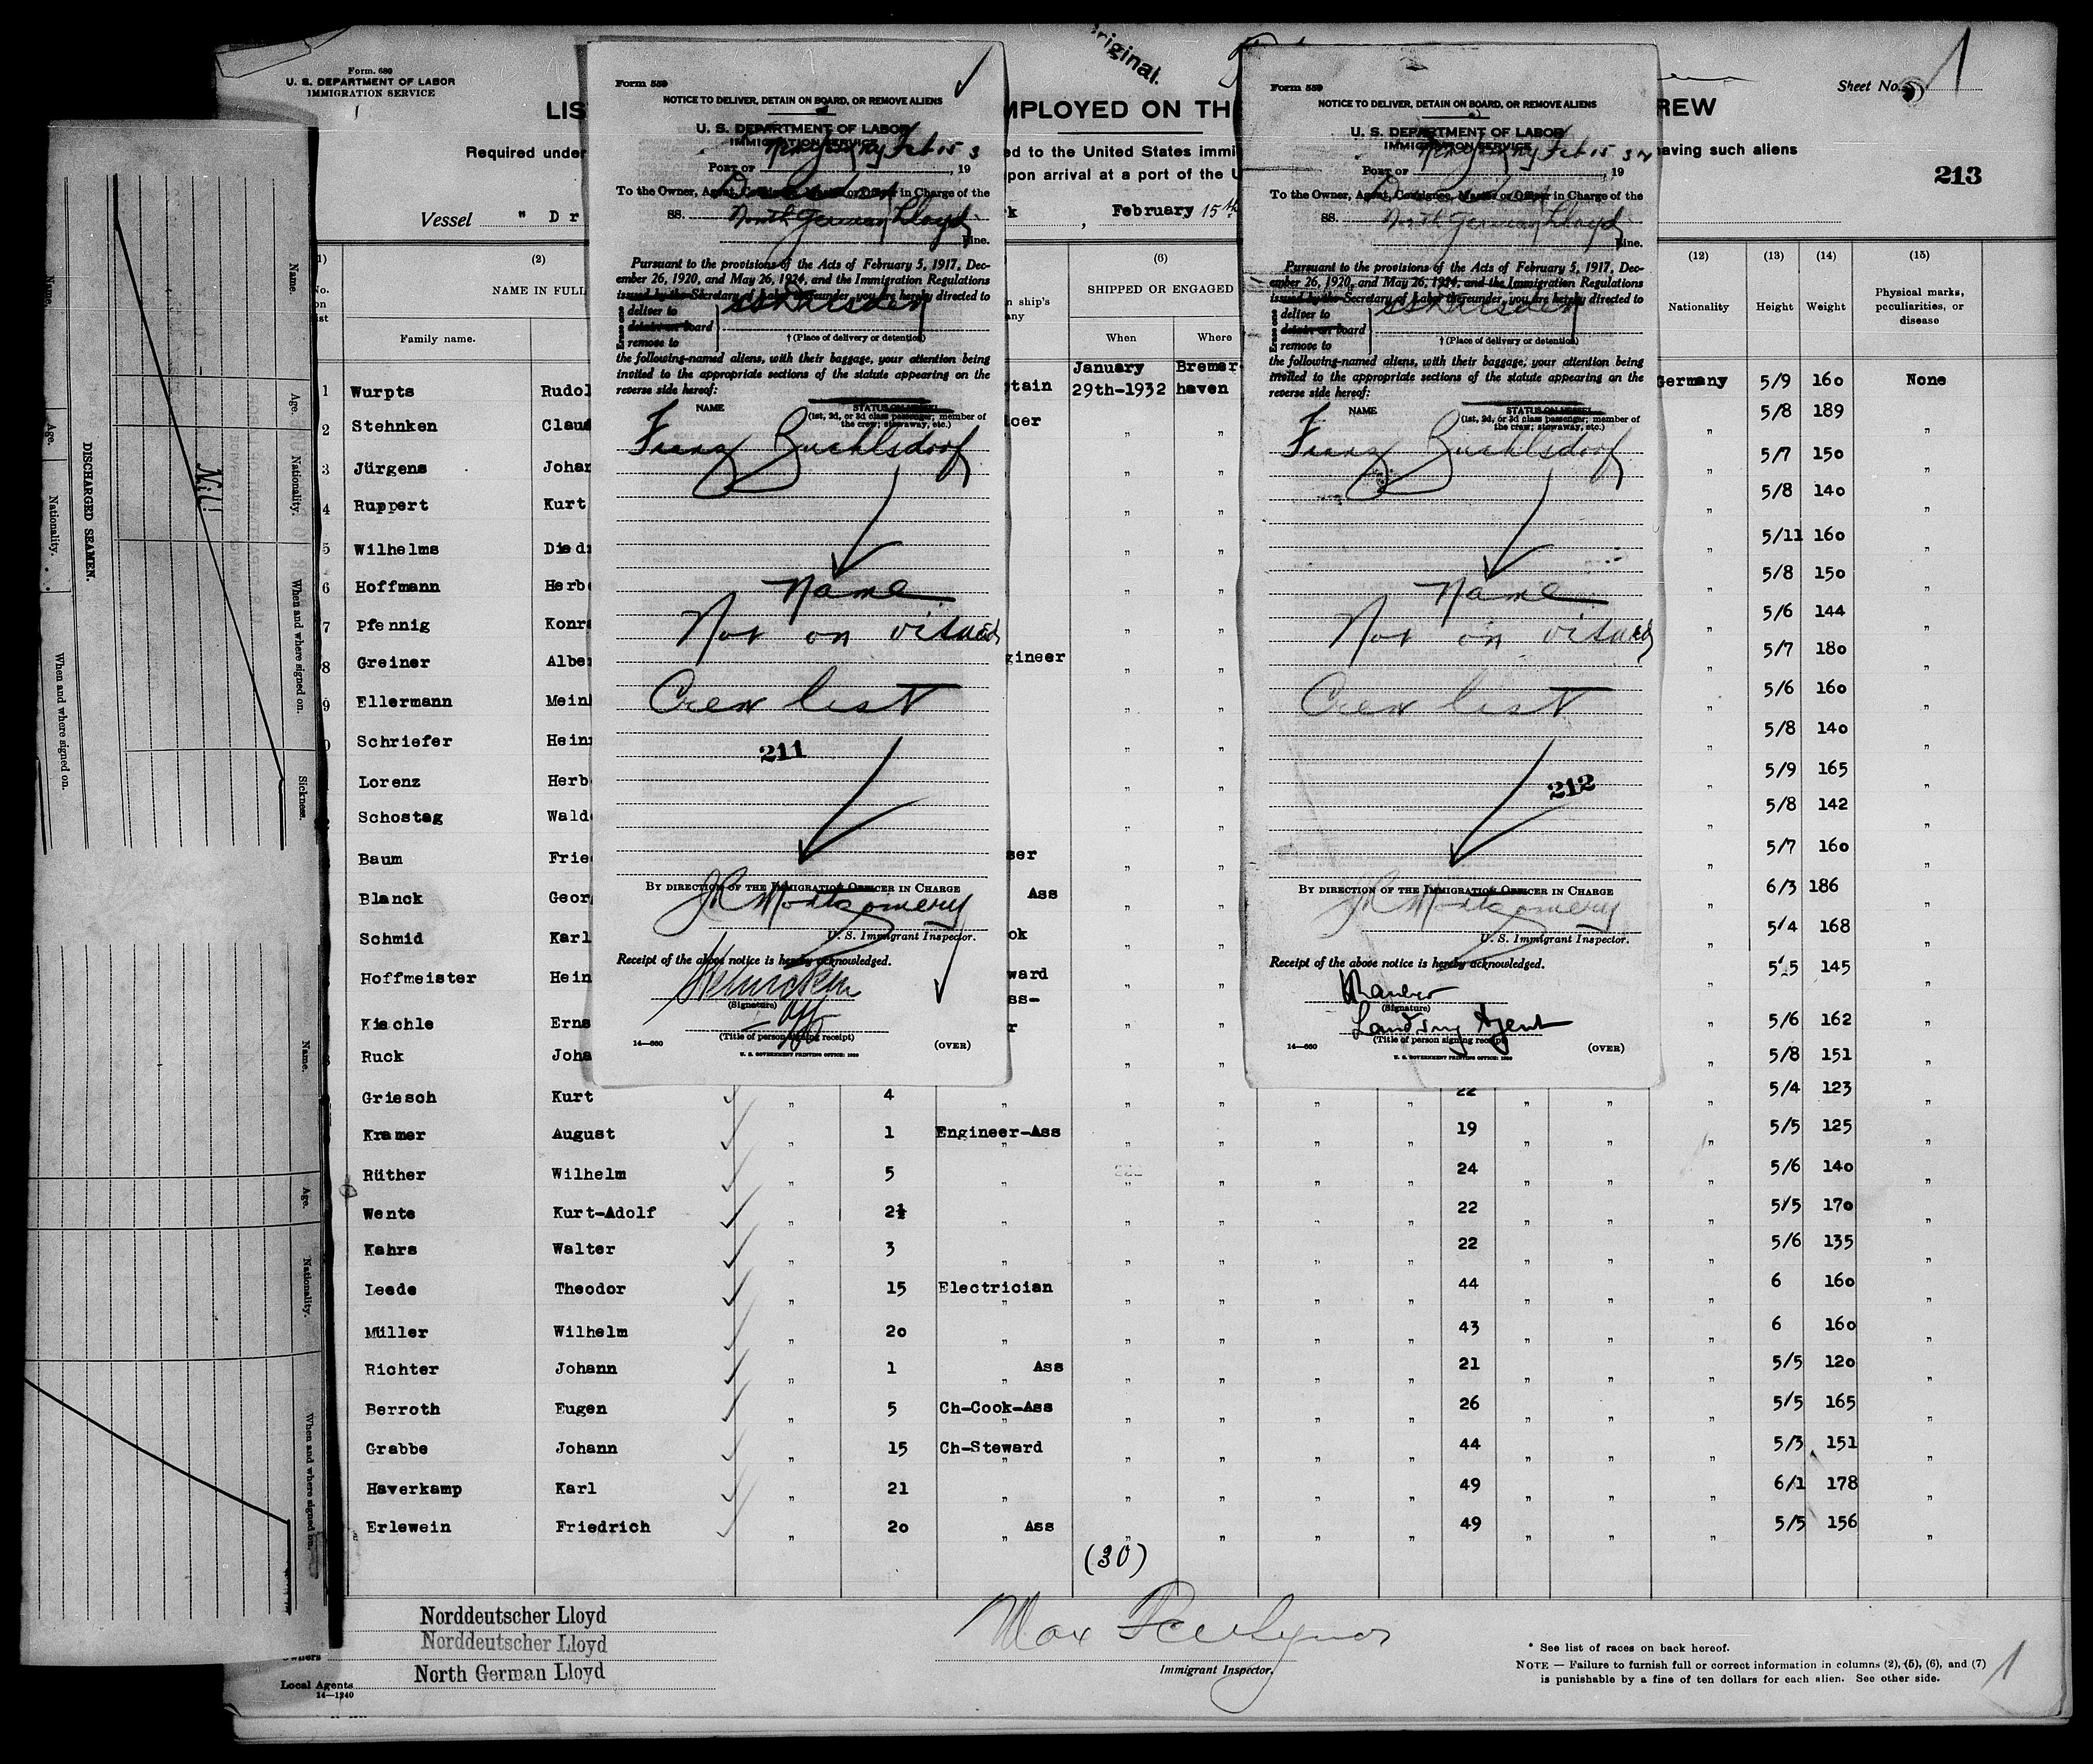 Form. 680
U. S. DEPARTMENT OF LABOR
IMMIGRATION SERVICE
Original.
Sheet No. 1
LIS
MPLOYED ON TH
REW
Required under
ed to the United States immi
having such aliens
pon arrival at a port of the U
213
Vessel " Dr
k , February 15th
(2) (6) (12) (13) (14) (15)
NAME IN FULL
SHIPPED OR ENGAGED
Nationality Height Weight Physical marks, peculiarities, or disease
Family name. When Where
1 Wurpts Rudol tain January 29th-1932 Bremer haven Germany 5/9 160 None
2 Stehnken Claud cer " " " 5/8 189 "
3 Jürgens Johan " " " 5/7 150 "
4 Ruppert Kurt " " " 5/8 140 "
5 Wilhelms Diedr " " " 5/11 160 "
6 Hoffmann Herbe " " " 5/8 150 "
7 Pfennig Konra " " " 5/6 144 "
8 Greiner Alber gineer " " " 5/7 180 "
9 Ellermann Mein " " " 5/6 160 "
Schriefer Hein " " " 5/8 140 "
Lorenz Herb " " " 5/9 165 "
Schostag Wald " " " 5/8 142 "
Baum Frie ser " " " 5/7 160 "
Blanck Geor Ass " " " 6/3 186 "
Schmid Karl ok " " " 5/4 168 "
Hoffmeister Hein ward " " " 5/5 145 "
Kiechle Erns ss- r " " " 5/6 162 "
Ruck Joha " " " 5/8 151 "
Griesch Kurt " 4 " " " " " 22 " " " 5/4 123 "
Kramer August " 1 Engineer-Ass " " " " 19 " " " 5/5 125 "
Rüther Wilhelm " 5 " " " " " 24 " " " 5/6 140 "
Wente Kurt-Adolf " 2½ " " " " " 22 " " " 5/5 170 "
Kahrs Walter " 3 " " " " " 22 " " " 5/6 135 "
Leede Theodor " 15 Electrician " " " " 44 " " " 6 160 "
Müller Wilhelm " 20 " " " " " 43 " " " 6 160 "
Richter Johann " 1 " Ass " " " " 21 " " " 5/5 120 "
Berroth Eugen " 5 Ch-Cook-Ass " " " " 26 " " " 5/5 165 "
Grabbe Johann " 15 Ch-Steward " " " " 44 " " " 5/3 151 "
Haverkamp Karl " 21 " " " " " 49 " " " 6/1 178 "
Erlewein Friedrich " 20 " Ass " " " " 49 " " " 5/5 156 "
(30)
Norddeutscher Lloyd
Norddeutscher Lloyd
Owners
North German Lloyd
Local Agents
14—1240
Max
Immigrant Inspector.
* See list of races on back hereof.
NOTE — Failure to furnish full or correct information in columns (2), (5), (6), and (7)
is punishable by a fine of ten dollars for each alien. See other side.
1
Form 559
NOTICE TO DELIVER, DETAIN ON BOARD, OR REMOVE ALIENS
U. S. DEPARTMENT OF LABOR
IMMIGRATION SERVICE
New York NY Feb 15 3
PORT OF , 19
To the Owner, Agent, Consignee, Master or Officer in Charge of the
Dresden
SS. North German Lloyd
Line.
Pursuant to the provisions of the Acts of February 5, 1917, Dec-
ember 26, 1920, and May 26, 1924, and the Immigration Regulations
issued by the Secretary of Labor thereunder, you are hereby directed to
Erase one
deliver to
detain on board
remove to
SS Dresden
† (Place of delivery or detention)
the following-named aliens, with their baggage, your attention being
invited to the appropriate sections of the statute appearing on the
reverse side hereof:
NAME STATUS ON VESSEL
(1st, 2d, or 3d class passenger; member of
the crew; stowaway, etc.)
Franz Buchlsdorf
Name
Not on visaed
Crew list
211
BY DIRECTION OF THE IMMIGRATION OFFICER IN CHARGE
JR Montgomery
U. S. Immigrant Inspector.
Receipt of the above notice is hereby acknowledged.
(Signature)
Off
(Title of person signing receipt)
14—660 (OVER)
U. S. GOVERNMENT PRINTING OFFICE: 1930
Form 559
NOTICE TO DELIVER, DETAIN ON BOARD, OR REMOVE ALIENS
U. S. DEPARTMENT OF LABOR
IMMIGRATION SERVICE
New York NY Feb 15 32
PORT OF , 19
To the Owner, Agent, Consignee, Master or Officer in Charge of the
Dresden
SS. North German Lloyd
Line.
Pursuant to the provisions of the Acts of February 5, 1917, Dec-
ember 26, 1920, and May 26, 1924, and the Immigration Regulations
issued by the Secretary of Labor thereunder, you are hereby directed to
Erase one
deliver to
detain on board
remove to
SS Dresden
† (Place of delivery or detention)
the following-named aliens, with their baggage, your attention being
invited to the appropriate sections of the statute appearing on the
reverse side hereof:
NAME STATUS ON VESSEL
(1st, 2d, or 3d class passenger; member of
the crew; stowaway, etc.)
Franz Buchlsdorf
Name
Not on visaed
Crew list
212
BY DIRECTION OF THE IMMIGRATION OFFICER IN CHARGE
JR Montgomery
U. S. Immigrant Inspector.
Receipt of the above notice is hereby acknowledged.
(Signature)
Landing Agent
(Title of person signing receipt)
14—660 (OVER)
U. S. GOVERNMENT PRINTING OFFICE: 1930
DISCHARGED SEAMEN.
Name. Age. Nationality. When and where signed on.
Name. Age. Nationality. When and where signed on. Sickness.
Nil!
Name. Age. Nationality. When and where signed on.